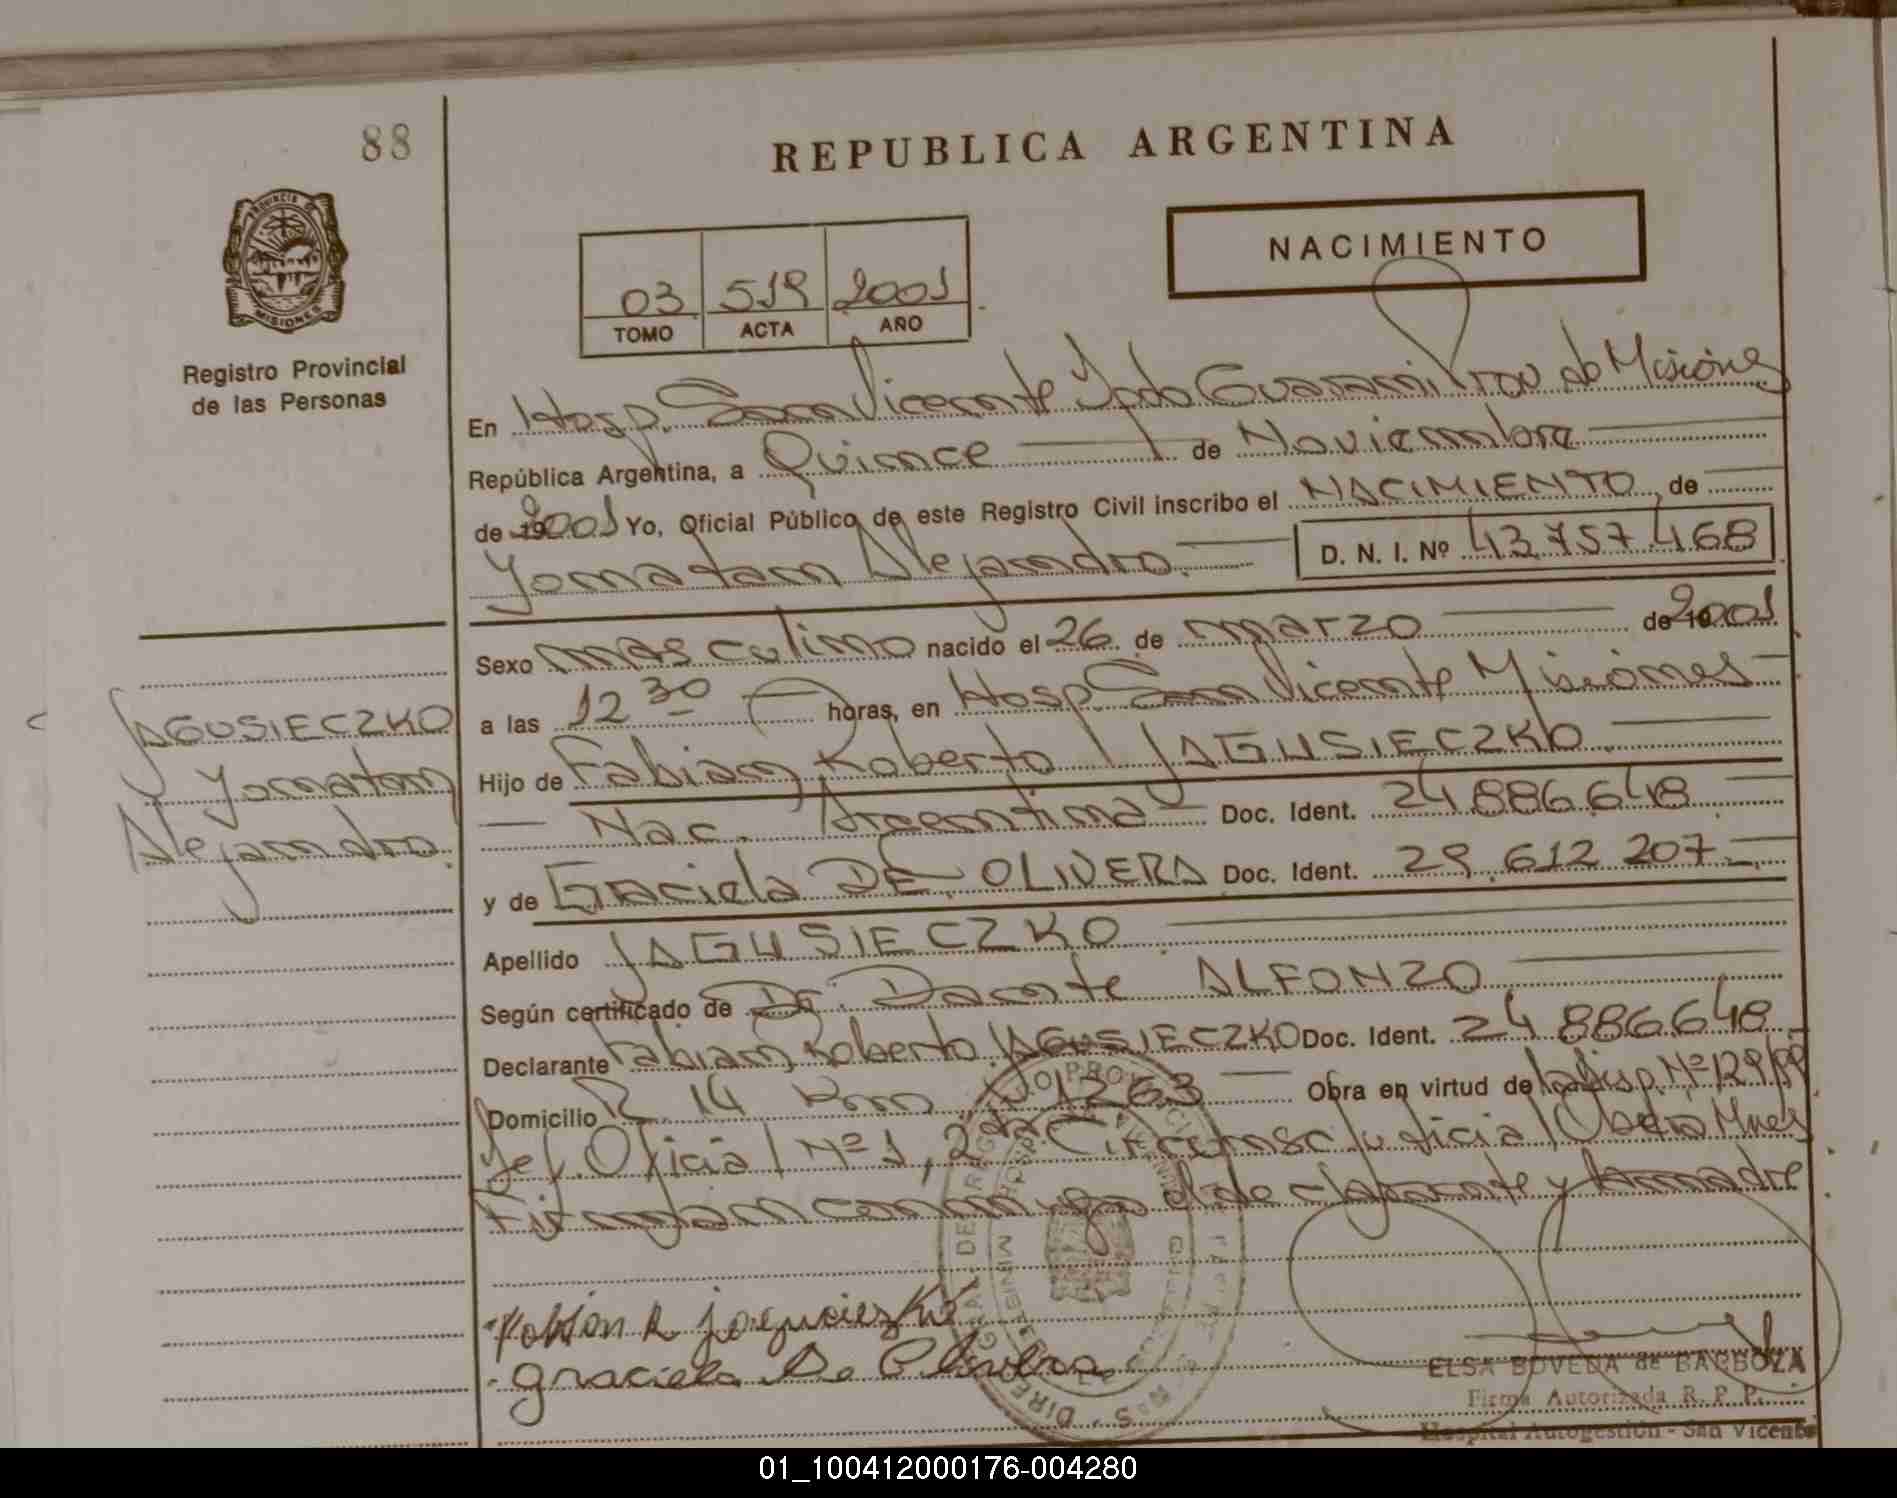 88
REPUBLICA ARGENTINA
PROVINCIA DE
MISIONES
Registro Provincial
de las Personas
NACIMIENTO
03 519 2001
TOMO ACTA AÑO
En Hosp. San Vicente Dpto Guarani Prov de Misiones
República Argentina, a Quince de Noviembre
de 19 2001 Yo, Oficial Público de este Registro Civil inscribo el NACIMIENTO de
Yonatan Alejandro. D. N. I. Nº 43.757.468
Sexo masculino nacido el 26 de marzo de 19 2001
a las 12 30 horas, en Hosp. San Vicente Misiones
Hijo de Fabian Roberto JAGUSIECZKO
Nac. Argentina Doc. Ident. 24.886.648
y de Graciela DE OLIVERA Doc. Ident. 29.612.207
Apellido JAGUSIECZKO
Según certificado de Dr. Dante ALFONZO
Declarante Fabian Roberto JAGUSIECZKO Doc. Ident. 24.886.648
Domicilio R. 14 Km 1263 Obra en virtud de la Disp. Nº 129/99
Jef. Oficial Nº 1, 2da Circunsc. Judicial Obera Mnes
Firman conmigo el declarante y la madre
JAGUSIECZKO
Yonatan
Alejandro.
Fabian R jagucieszko
graciela De Olivera
ELSA BOVEDA de BARBOZA
Firma Autorizada R. P. P.
Hospital Autogestión - San Vicente
01_100412000176-004280